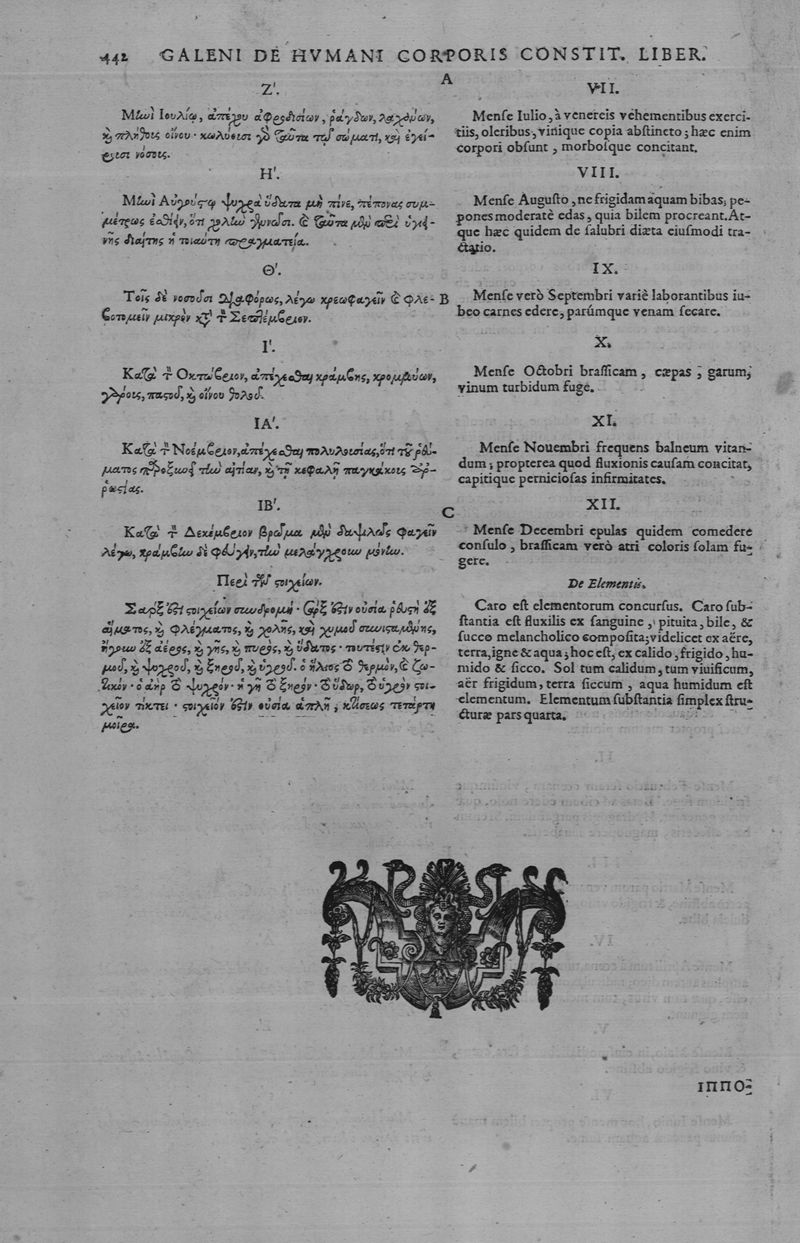 442 GALENI DE HVMANI CORPORIS CONSTIT. LIBER.
A
Ζʹ.
Μηνὶ Ἰουλίῳ, ἀπέχου ἀφροδισίων, ῥάγδων, λαχάνων,
καὶ πλήθους οἴνου· κωλύουσι γὰρ ταῦτα τῷ σώματι, καὶ ἐγεί-
ρουσι νόσους.
Ηʹ.
Μηνὶ Αὐγούστῳ ψυχρὰ ὕδατα μὴ πίνε, πέπονας συμ-
μέτρως ἐσθίειν, ὅτι χολὴν γεννῶσι. καὶ ταῦτα μὲν περὶ ὑγιει-
νῆς διαίτης ἡ τοιαύτη πραγματεία.
Θʹ.
Τοῖς δὲ νοσοῦσι διαφόρως, λέγω κρεωφαγεῖν καὶ φλε-
βοτομεῖν μικρὸν κατὰ τὸν Σεπτέμβριον.
Ιʹ.
Κατὰ τὸν Ὀκτώβριον, ἀπέχεσθαι κράμβης, κρομμύων,
γάρους, πασοῦ, καὶ οἴνου θολοῦ.
ΙΑʹ.
Κατὰ τὸν Νοέμβριον, ἀπέχεσθαι πολυλουσίας, ὅτι τοῦ ῥεύ-
ματος παροξύνει τὴν αἰτίαν, καὶ τῇ κεφαλῇ παγκάκους ἀῤ-
ῥωστίας.
ΙΒʹ.
Κατὰ τὸν Δεκέμβριον βρῶμα μὲν δαψιλῶς φαγεῖν
λέγω, κράμβην δὲ φεύγειν, τὴν μελάγχροιην μόνην.
Περὶ τῶν στοιχείων.
Σάρξ ἐστι στοιχείων συνδρομή· σάρξ ἐστιν οὐσία ῥευστὴ ἐξ
αἵματος, καὶ φλέγματος, καὶ χολῆς, καὶ χυμοῦ συνισταμένης,
ἤγουν ἐξ ἀέρος, καὶ γῆς, καὶ πυρὸς, καὶ ὕδατος· τουτέστιν ἐκ θερ-
μοῦ, καὶ ψυχροῦ, καὶ ξηροῦ, καὶ ὑγροῦ. ὁ ἥλιος τὸ θερμὸν, καὶ ζω-
τικόν· ὁ ἀὴρ τὸ ψυχρόν· ἡ γῆ τὸ ξηρόν· τὸ ὕδωρ, τὸ ὑγρὸν στοι-
χεῖον τίκτει· στοιχεῖόν ἐστιν οὐσία ἁπλῆ, κτίσεως τετάρτη
μοῖρα.
VII.
Menſe Iulio, à venereis vehementibus exerci-
tiis, oleribus, vinique copia abſtineto; hæc enim
corpori obſunt, morboſque concitant.
VIII.
Menſe Auguſto, ne frigidam aquam bibas, pe-
pones moderatè edas, quia bilem procreant. At-
que hæc quidem de ſalubri diæta eiuſmodi tra-
ctatio.
IX.
B Menſe verò Septembri variè laborantibus iu-
beo carnes edere, parúmque venam ſecare.
X.
Menſe Octobri braſſicam, cæpas, garum,
vinum turbidum fuge.
XI.
Menſe Nouembri frequens balneum vitan-
dum; propterea quod fluxionis cauſam concitat,
capitique pernicioſas infirmitates.
XII.
C
Menſe Decembri epulas quidem comedere
conſulo, braſſicam verò atri coloris ſolam fu-
gere.
De Elementis.
Caro eſt elementorum concurſus. Caro ſub-
ſtantia eſt fluxilis ex ſanguine, pituita, bile, &
ſucco melancholico compoſita; videlicet ex aëre,
terra, igne & aqua; hoc eſt, ex calido, frigido, hu-
mido & ſicco. Sol tum calidum, tum viuificum,
aër frigidum, terra ſiccum, aqua humidum eſt
elementum. Elementum ſubſtantia ſimplex ſtru-
cturæ pars quarta.
ΙΠΠΟ-